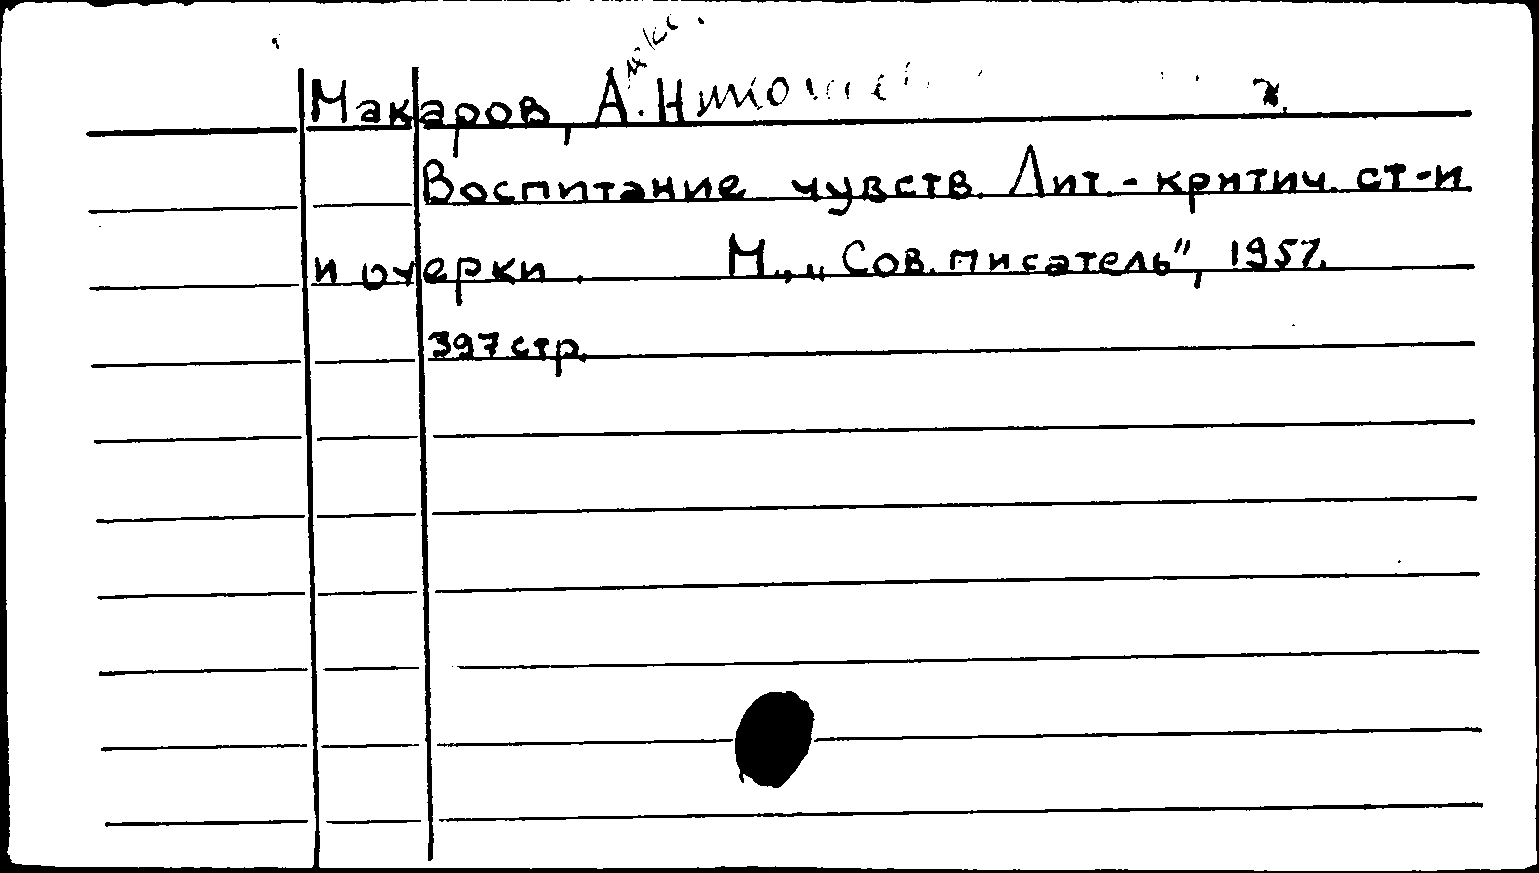 Макаров, А. Н
Воспитание чувств. Лит.-критич. ст-и
и очерки. М., „Сов. писатель", 1957.
397 стр.